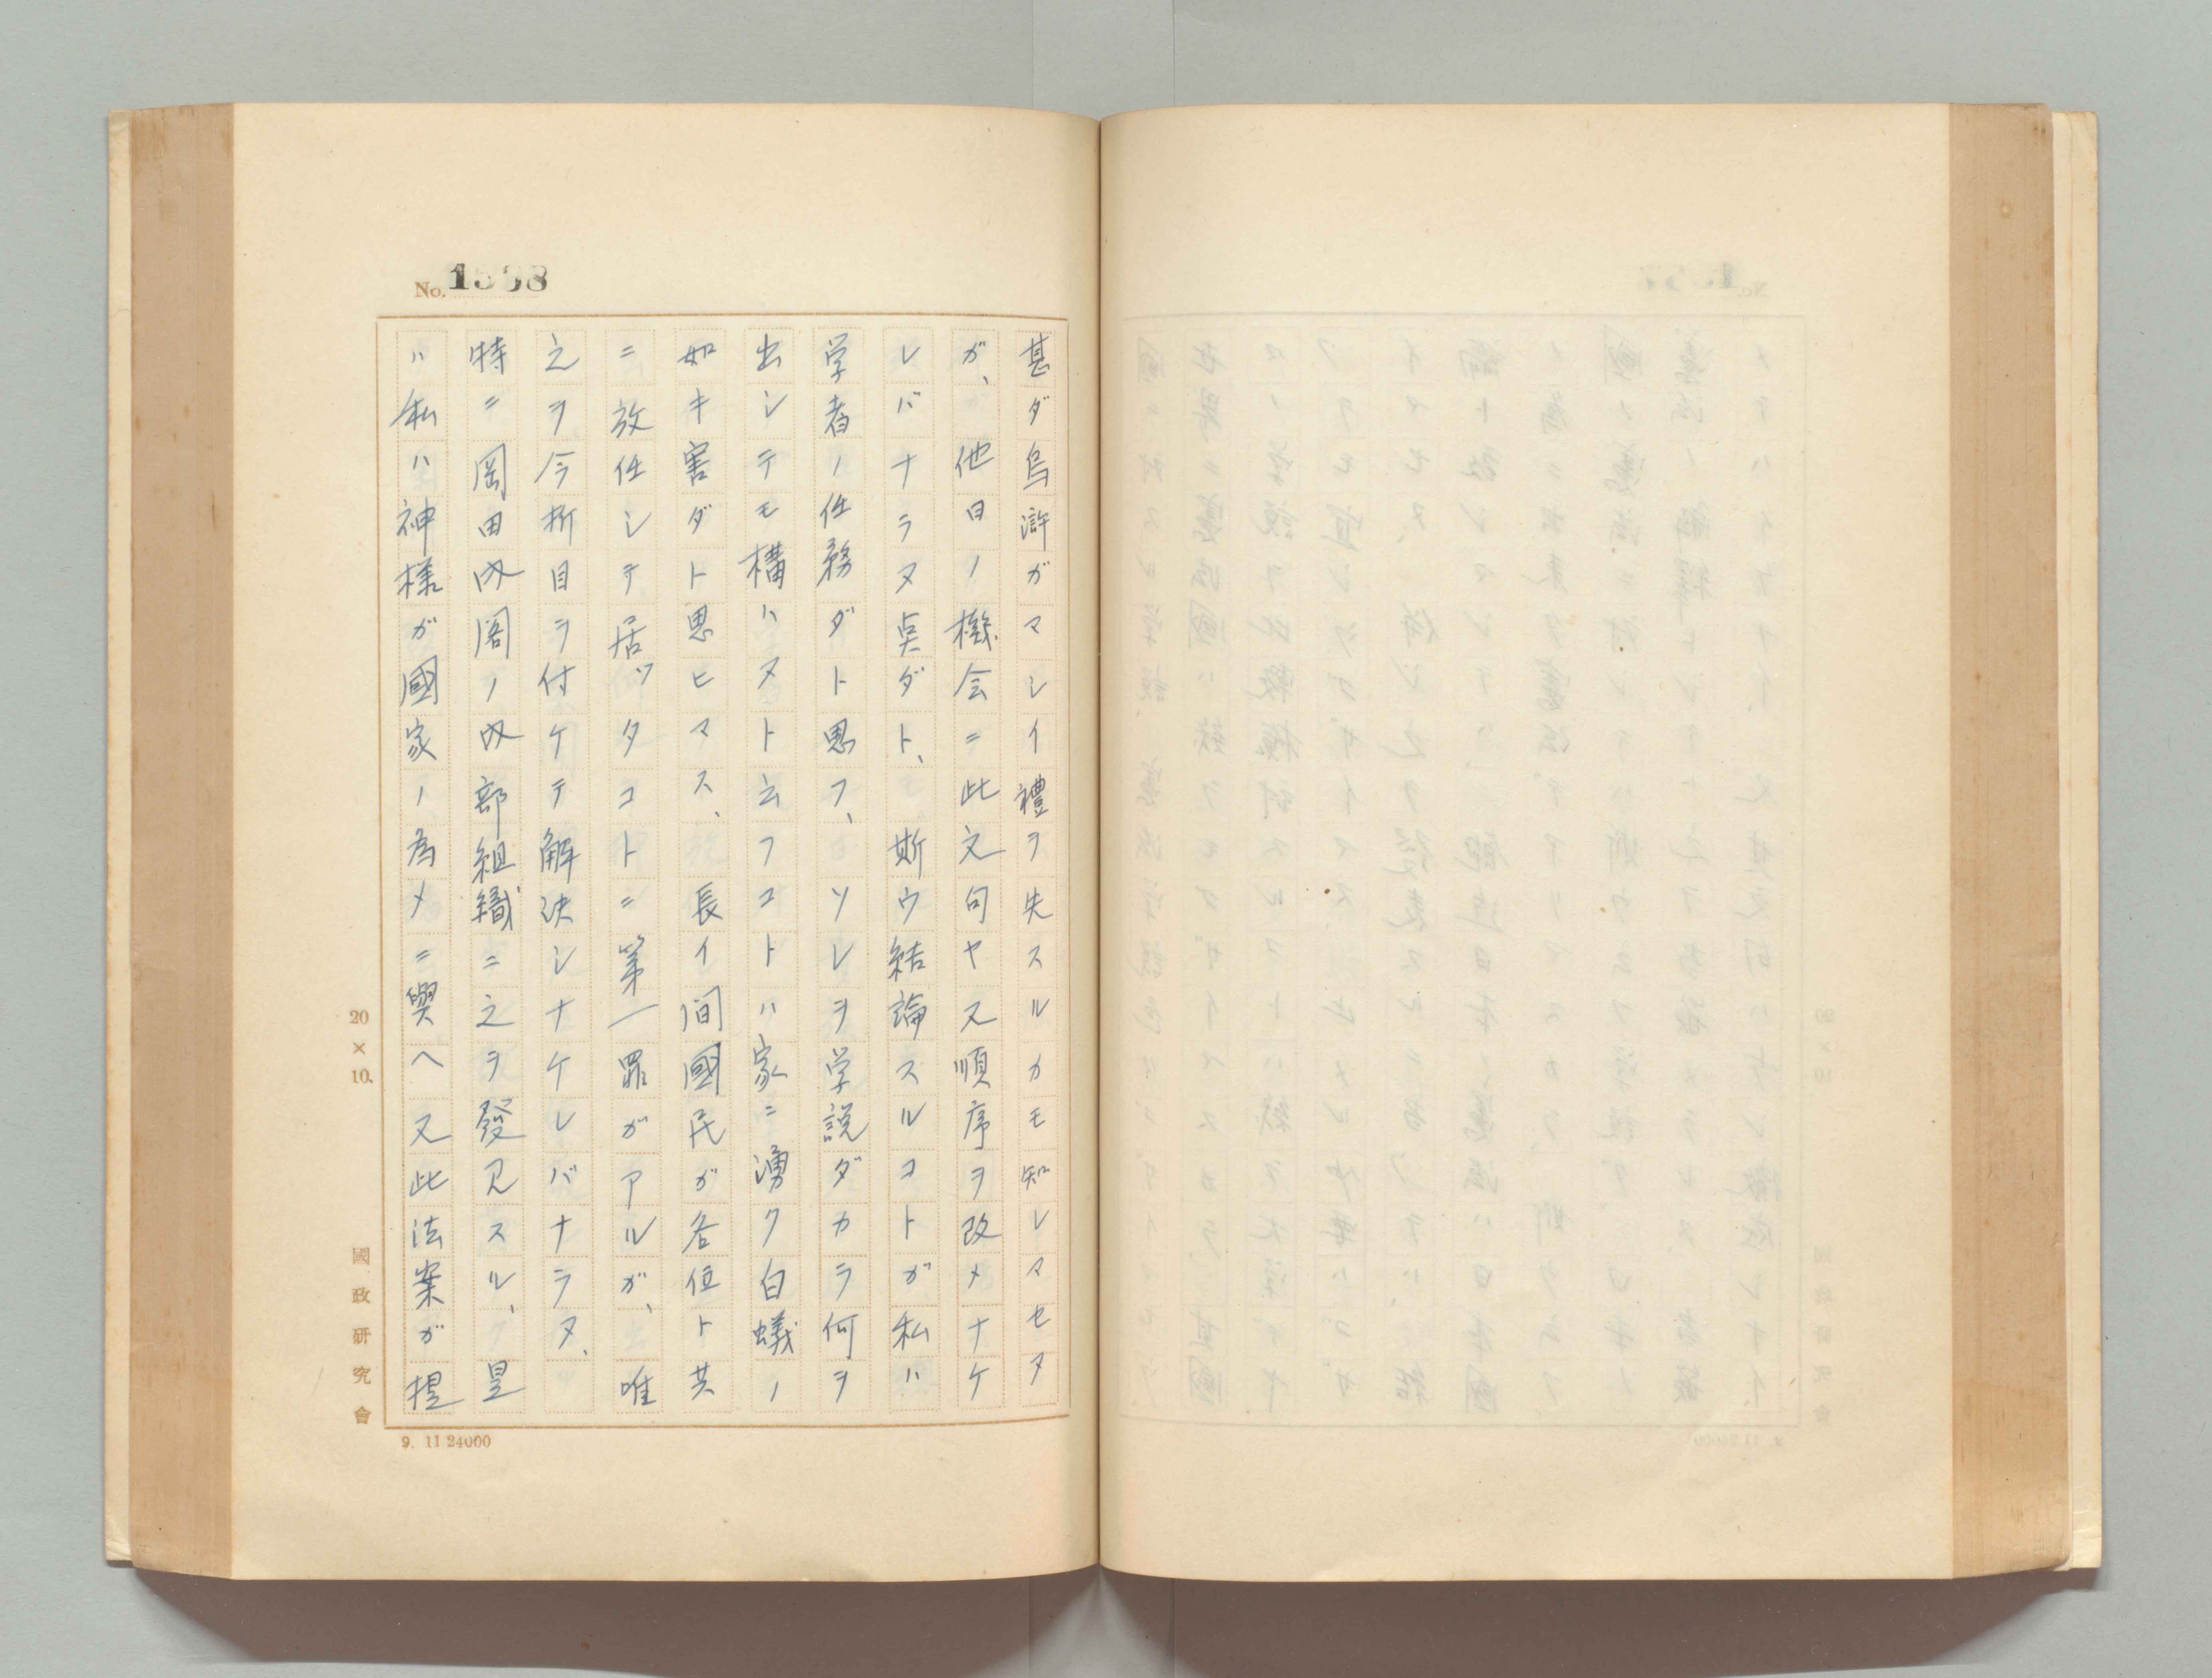 No. 1538
甚ダ烏滸ガマシイ禮ヲ失スルカモ知レマセヌ
ガ、他日ノ機会ニ此文句ヤ又順序ヲ改メナケ
レバナラヌ点ダト、斯ウ結論スルコトガ私ハ
学者ノ任務ダト思フ、ソレヲ学説ダカラ何ヲ
出シテモ構ハヌト云フコトハ家ニ湧ク白蟻ノ
如キ害ダト思ヒマス、長イ間國民ガ各位ト共
ニ放任シテ居ツタコトニ第一罪ガアルガ、唯
之ヲ今折目ヲ付ケテ解決シナケレバナラヌ、
特ニ岡田内閣ノ内部組織ニ之ヲ發見スル、是
ハ私ハ神様ガ國家ノ為メニ與ヘ又此法案ガ提
20×10.
國政研究會
9. 11 24000